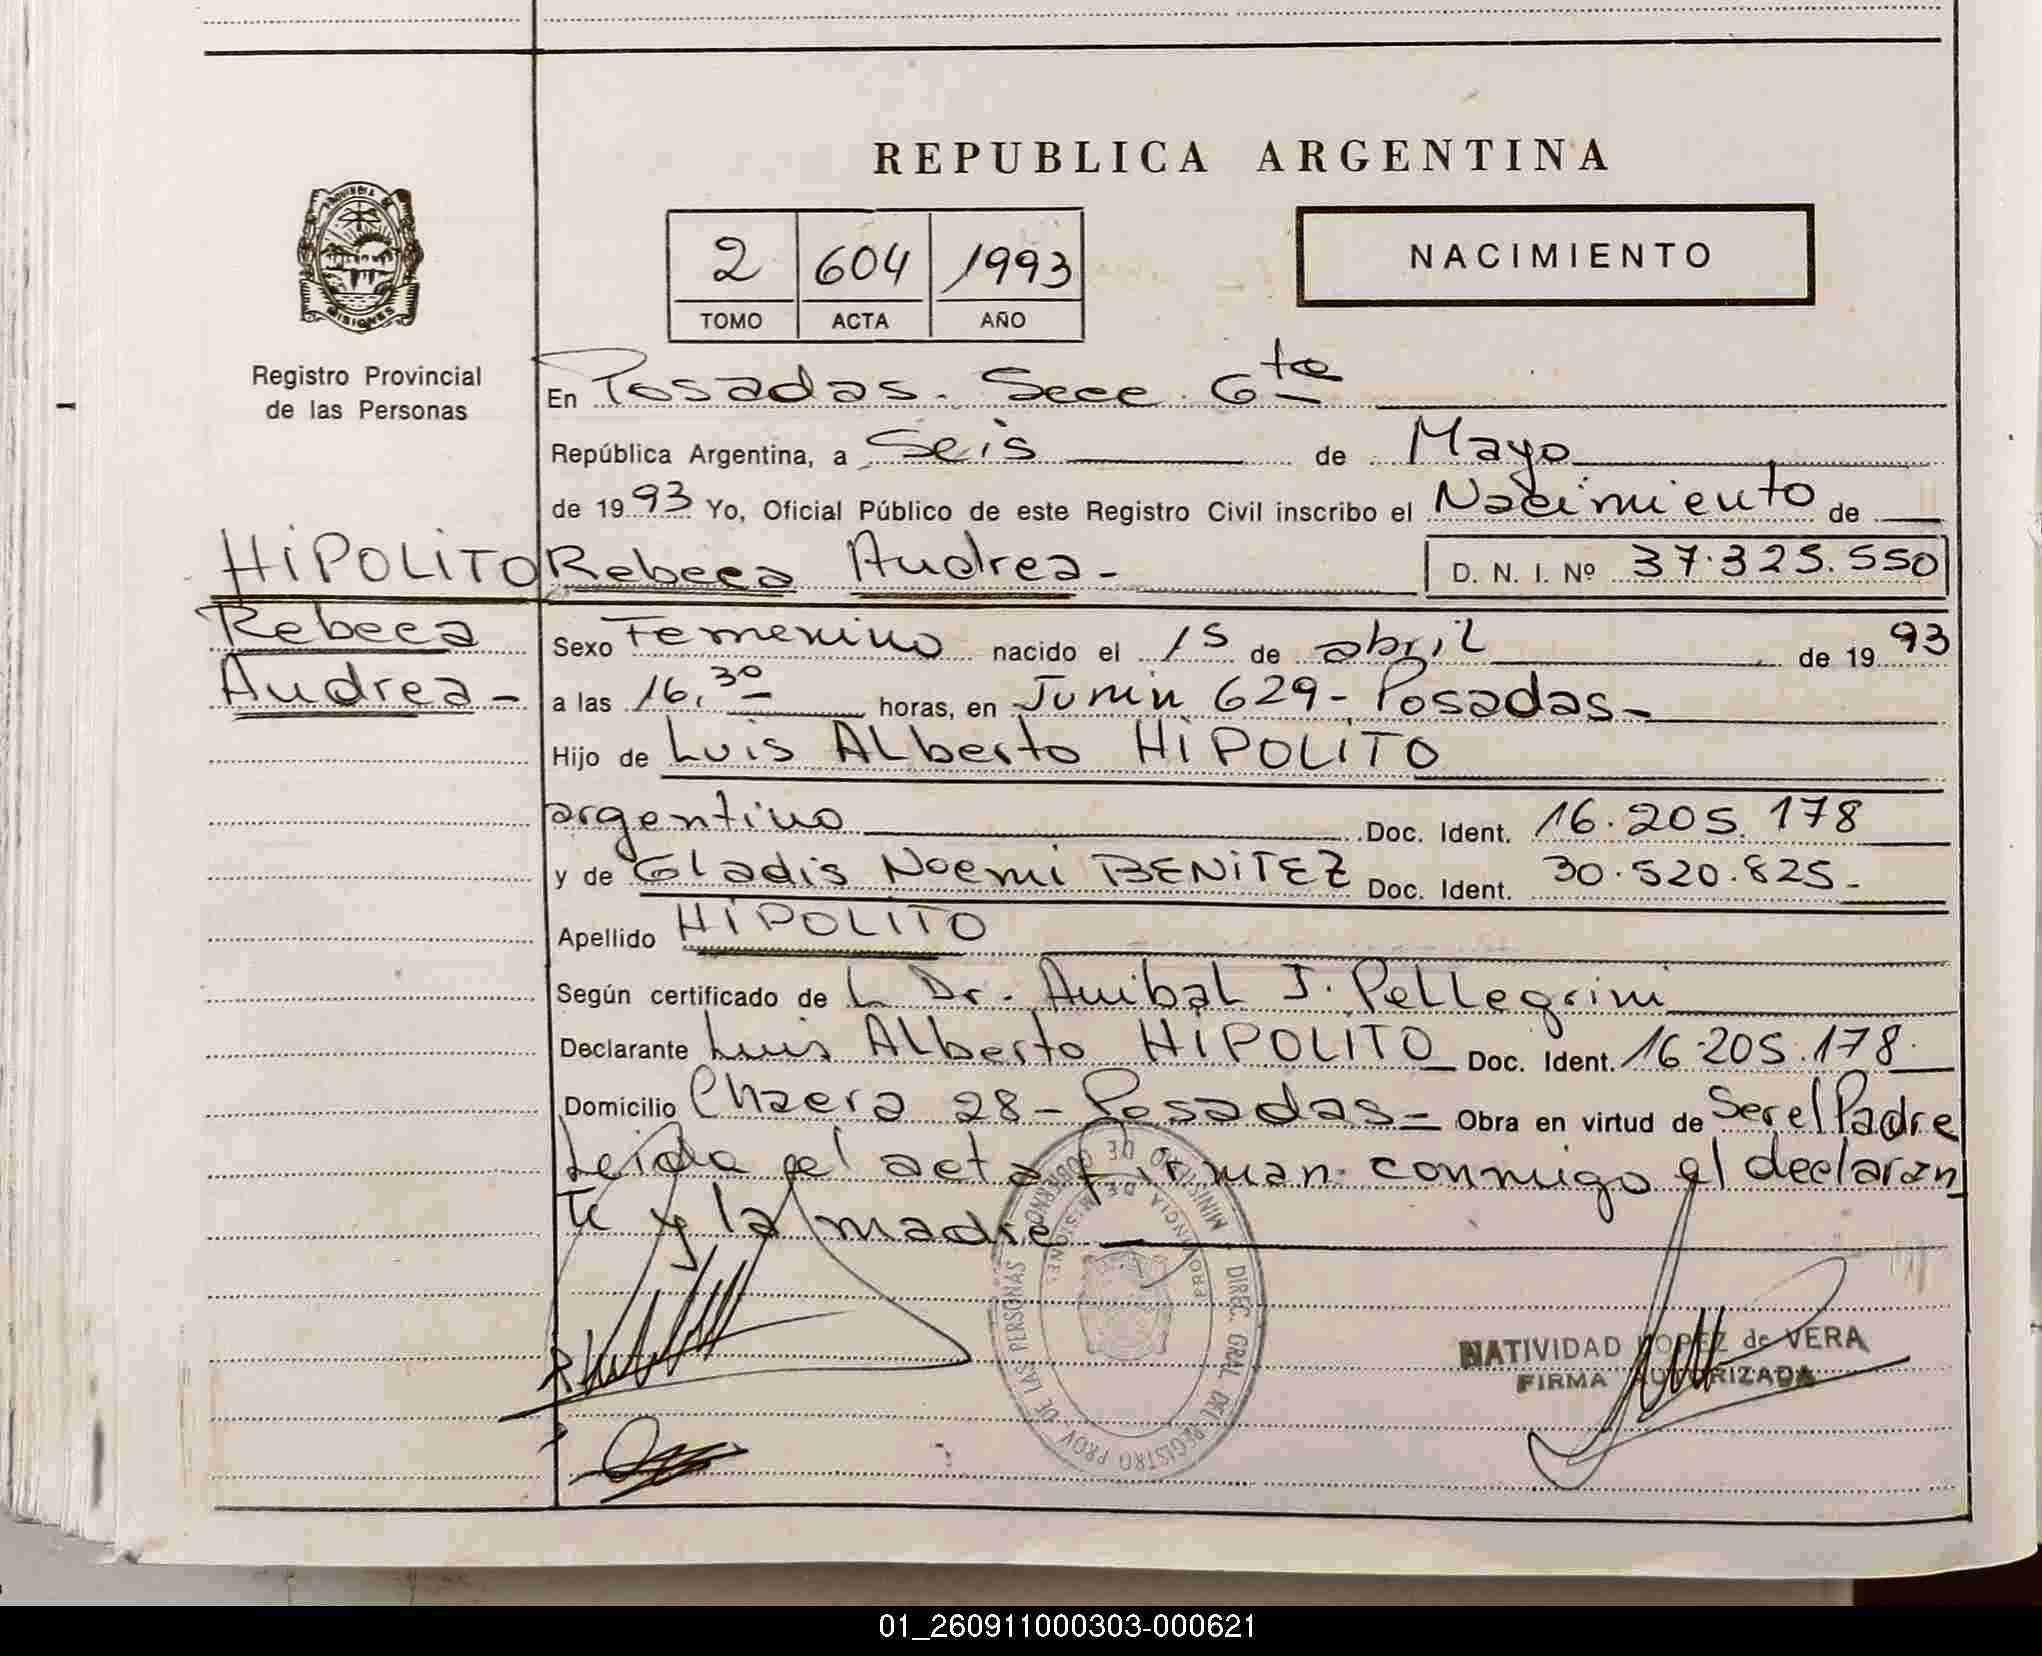 REPUBLICA ARGENTINA
PROVINCIA DE
MISIONES
Registro Provincial
de las Personas
2 604 1993
TOMO ACTA AÑO
NACIMIENTO
En Posadas. Secc. 6ta
República Argentina, a Seis de Mayo
de 1993 Yo, Oficial Público de este Registro Civil inscribo el Nacimiento de
HIPOLITO Rebeca Andrea - D. N. I. Nº 37.325.550
Rebeca
Andrea -
Sexo Femenino nacido el 15 de abril de 1993
a las 16,30 horas, en Junin 629 - Posadas -
Hijo de Luis ALberto HIPOLITO
argentino Doc. Ident. 16.205.178
y de GLadis Noemi BENITEZ Doc. Ident. 30.520.825 -
Apellido HIPOLITO
Según certificado de L Dr. AnibaL J. PeLLegrini
Declarante Luis ALberto HIPOLITO Doc. Ident. 16.205.178.
Domicilio Chacra 28 - Posadas = Obra en virtud de Ser el Padre
Leida el acta firman conmigo el declaran
te y la madre
MINISTERIO DE GOBIERNO
PROVINCIA DE MISIONES
DIREC. GRAL. DEL REGISTRO PROV. DE LAS PERSONAS
NATIVIDAD LOPEZ de VERA
FIRMA AUTORIZADA
01_260911000303-000621